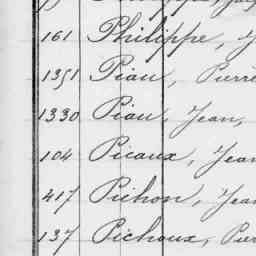 161 Philippe, J
1351 Piau, Pierre
1330 Piau, Jean,
104 Picaux, Jean
417 Pichon, Jean
137 Pichoux, Pier